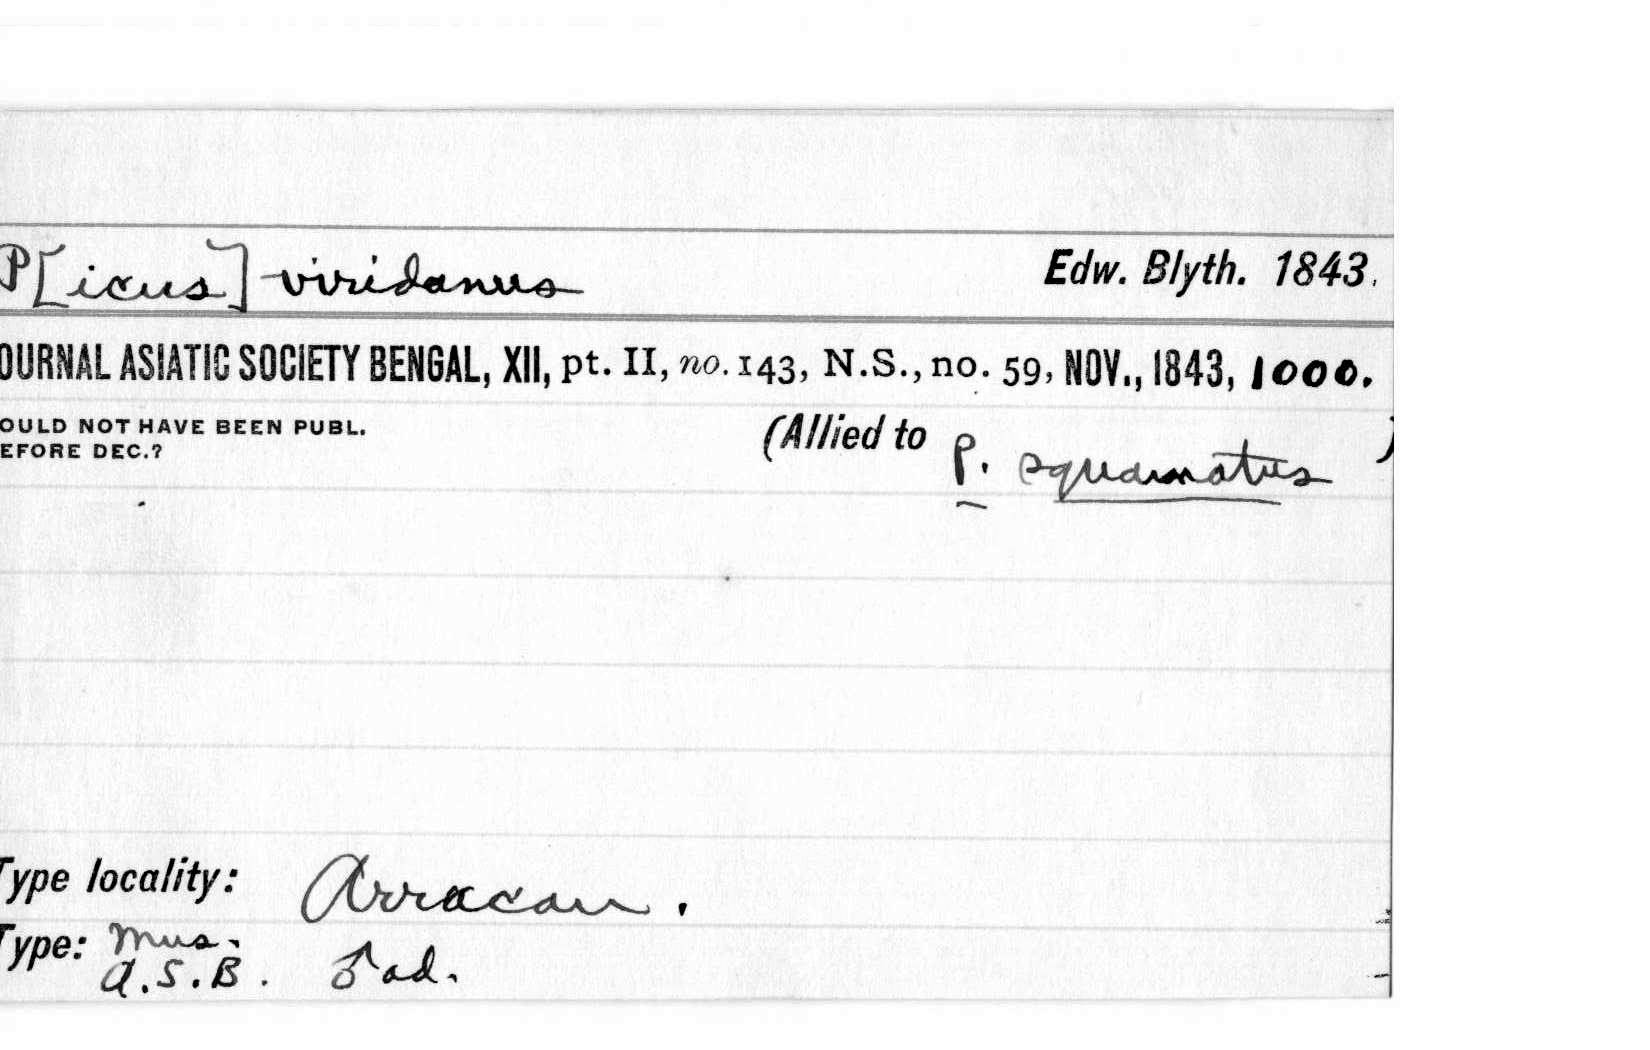 P[icus] viridanus Edw. Blyth. 1843.
OURNAL ASIATIC SOCIETY BENGAL, XII, pt. II, no. 143, N.S., no. 59, NOV., 1843, 1000.
OULD NOT HAVE BEEN PUBL.
EFORE DEC.?
(Allied to P. squamatus )
Type locality: Arracan.
Type: Mus.
A.S.B. ♂ ad.